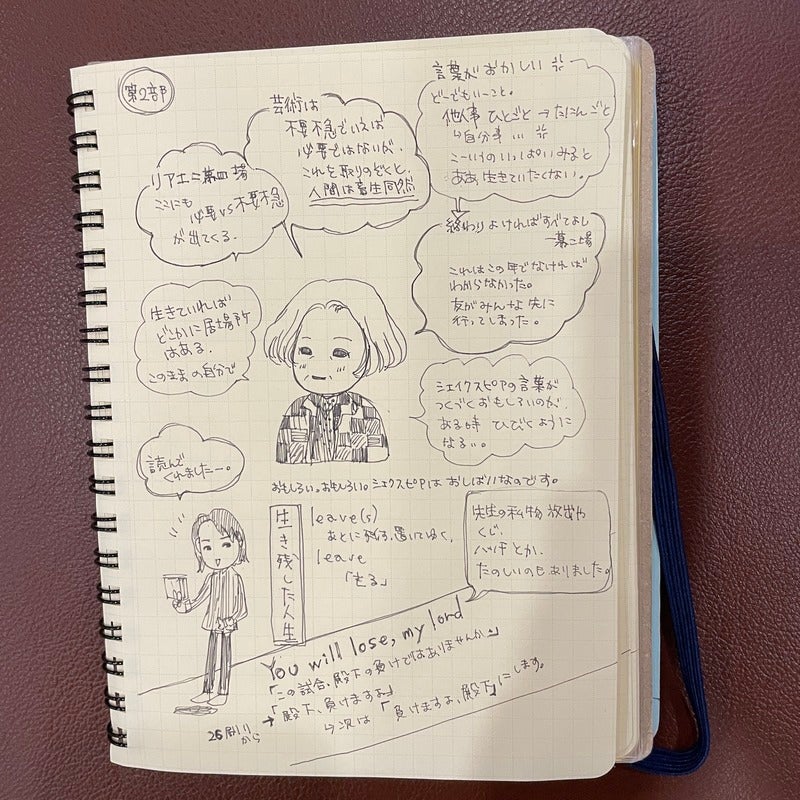 第2部
芸術は
不要不急でいえば
必要ではないが、
これを取りのぞくと、
人間は畜生同然
言葉がおかしい
どーでもいーこと。
他人事 ひとごと → たにんごと
↳自分事…
こーいうのいっぱいみると
ああ、生きていたくない。
リア王二幕四場
ここにも
必要vs不要不急
が出てくる。
終わりよければすべてよし
一幕二場
これはこの年でなければ
わからなかった。
友がみんな先に
行ってしまった。
生きていれば
どこかに居場所
はある。
このままの自分で
シェイクスピアの言葉が
つくづくおもしろいのが、
ある時 ひびくように
なる。
読んで
くれましたー。
おもしろい。おもしろい。シェクスピアは おしばいなのです。
生き残した人生
leave(s)
あとに残る、置いてゆく、
leave
「去る」
先生の私物放出や
くじ、
ハッチとか、
たのしいのもありました。
You will lose, my lord
「この試合、殿下の負けではありませんか」
→「殿下、負けますよ」
↳次は「負けますよ、殿下」にします。
26刷り
から